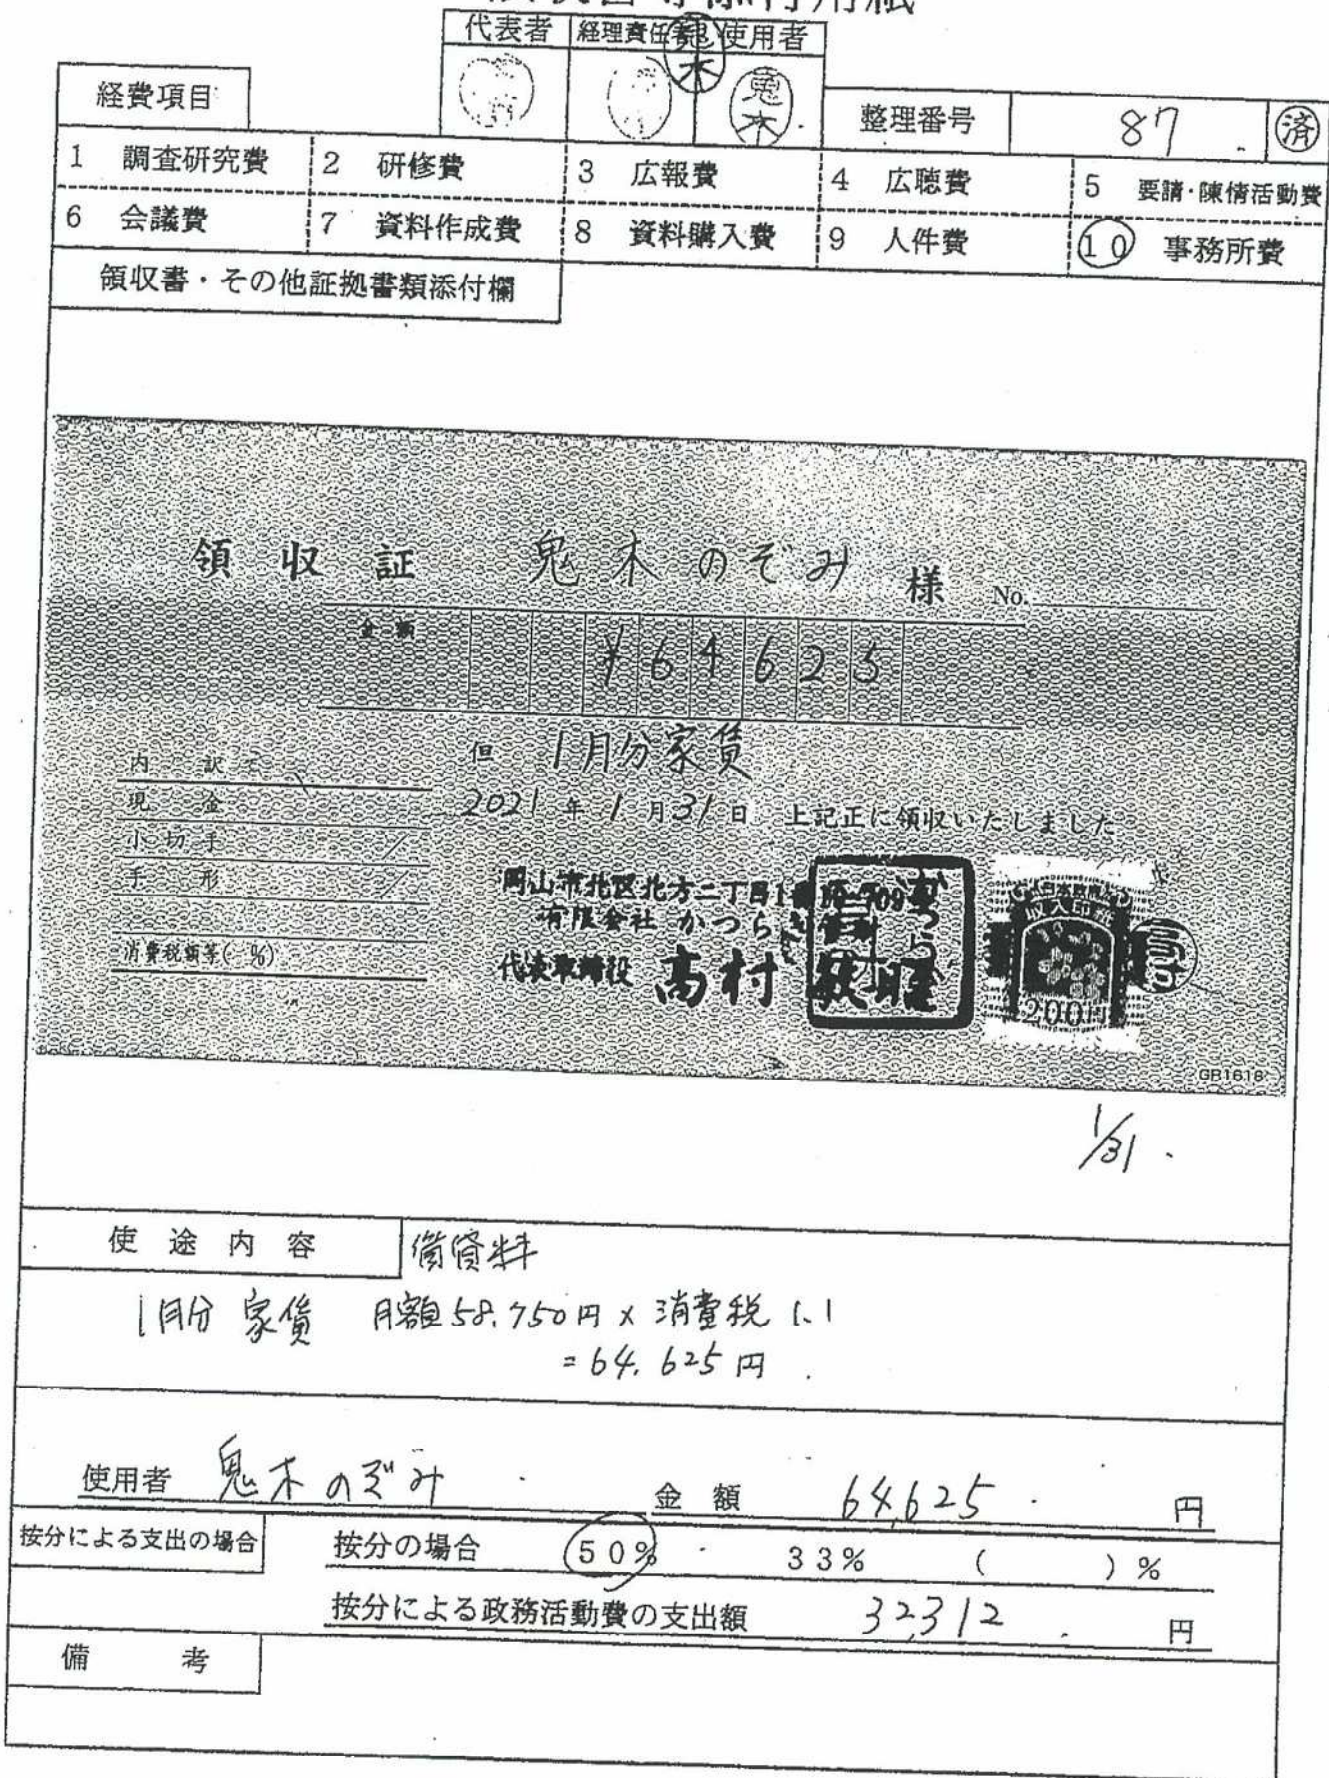 代表者 経理責任者 使用者
鬼木
鬼木
経費項目
整理番号 87 済
1 調査研究費 2 研修費 3 広報費 4 広聴費 5 要請・陳情活動費
6 会議費 7 資料作成費 8 資料購入費 9 人件費 10 事務所費
領収書・その他証拠書類添付欄
領収証 鬼木のぞみ 様 No.
金額 ¥64625
但 1月分家賃
内訳
現金
小切手
手形
消費税額等( %)
2021年1月31日 上記正に領収いたしました
岡山市北区北方二丁目1
有限会社 かつらぎ
代表取締役 高村
日本政府
収入印紙
200円
GB1616
1/31.
使途内容 借賃料
1月分 家賃 月額58.750円×消費税1.1
=64.625円
使用者 鬼木のぞみ 金額 64,625 円
按分による支出の場合 按分の場合 50% ・ 33% ( )%
按分による政務活動費の支出額 32,312 円
備考